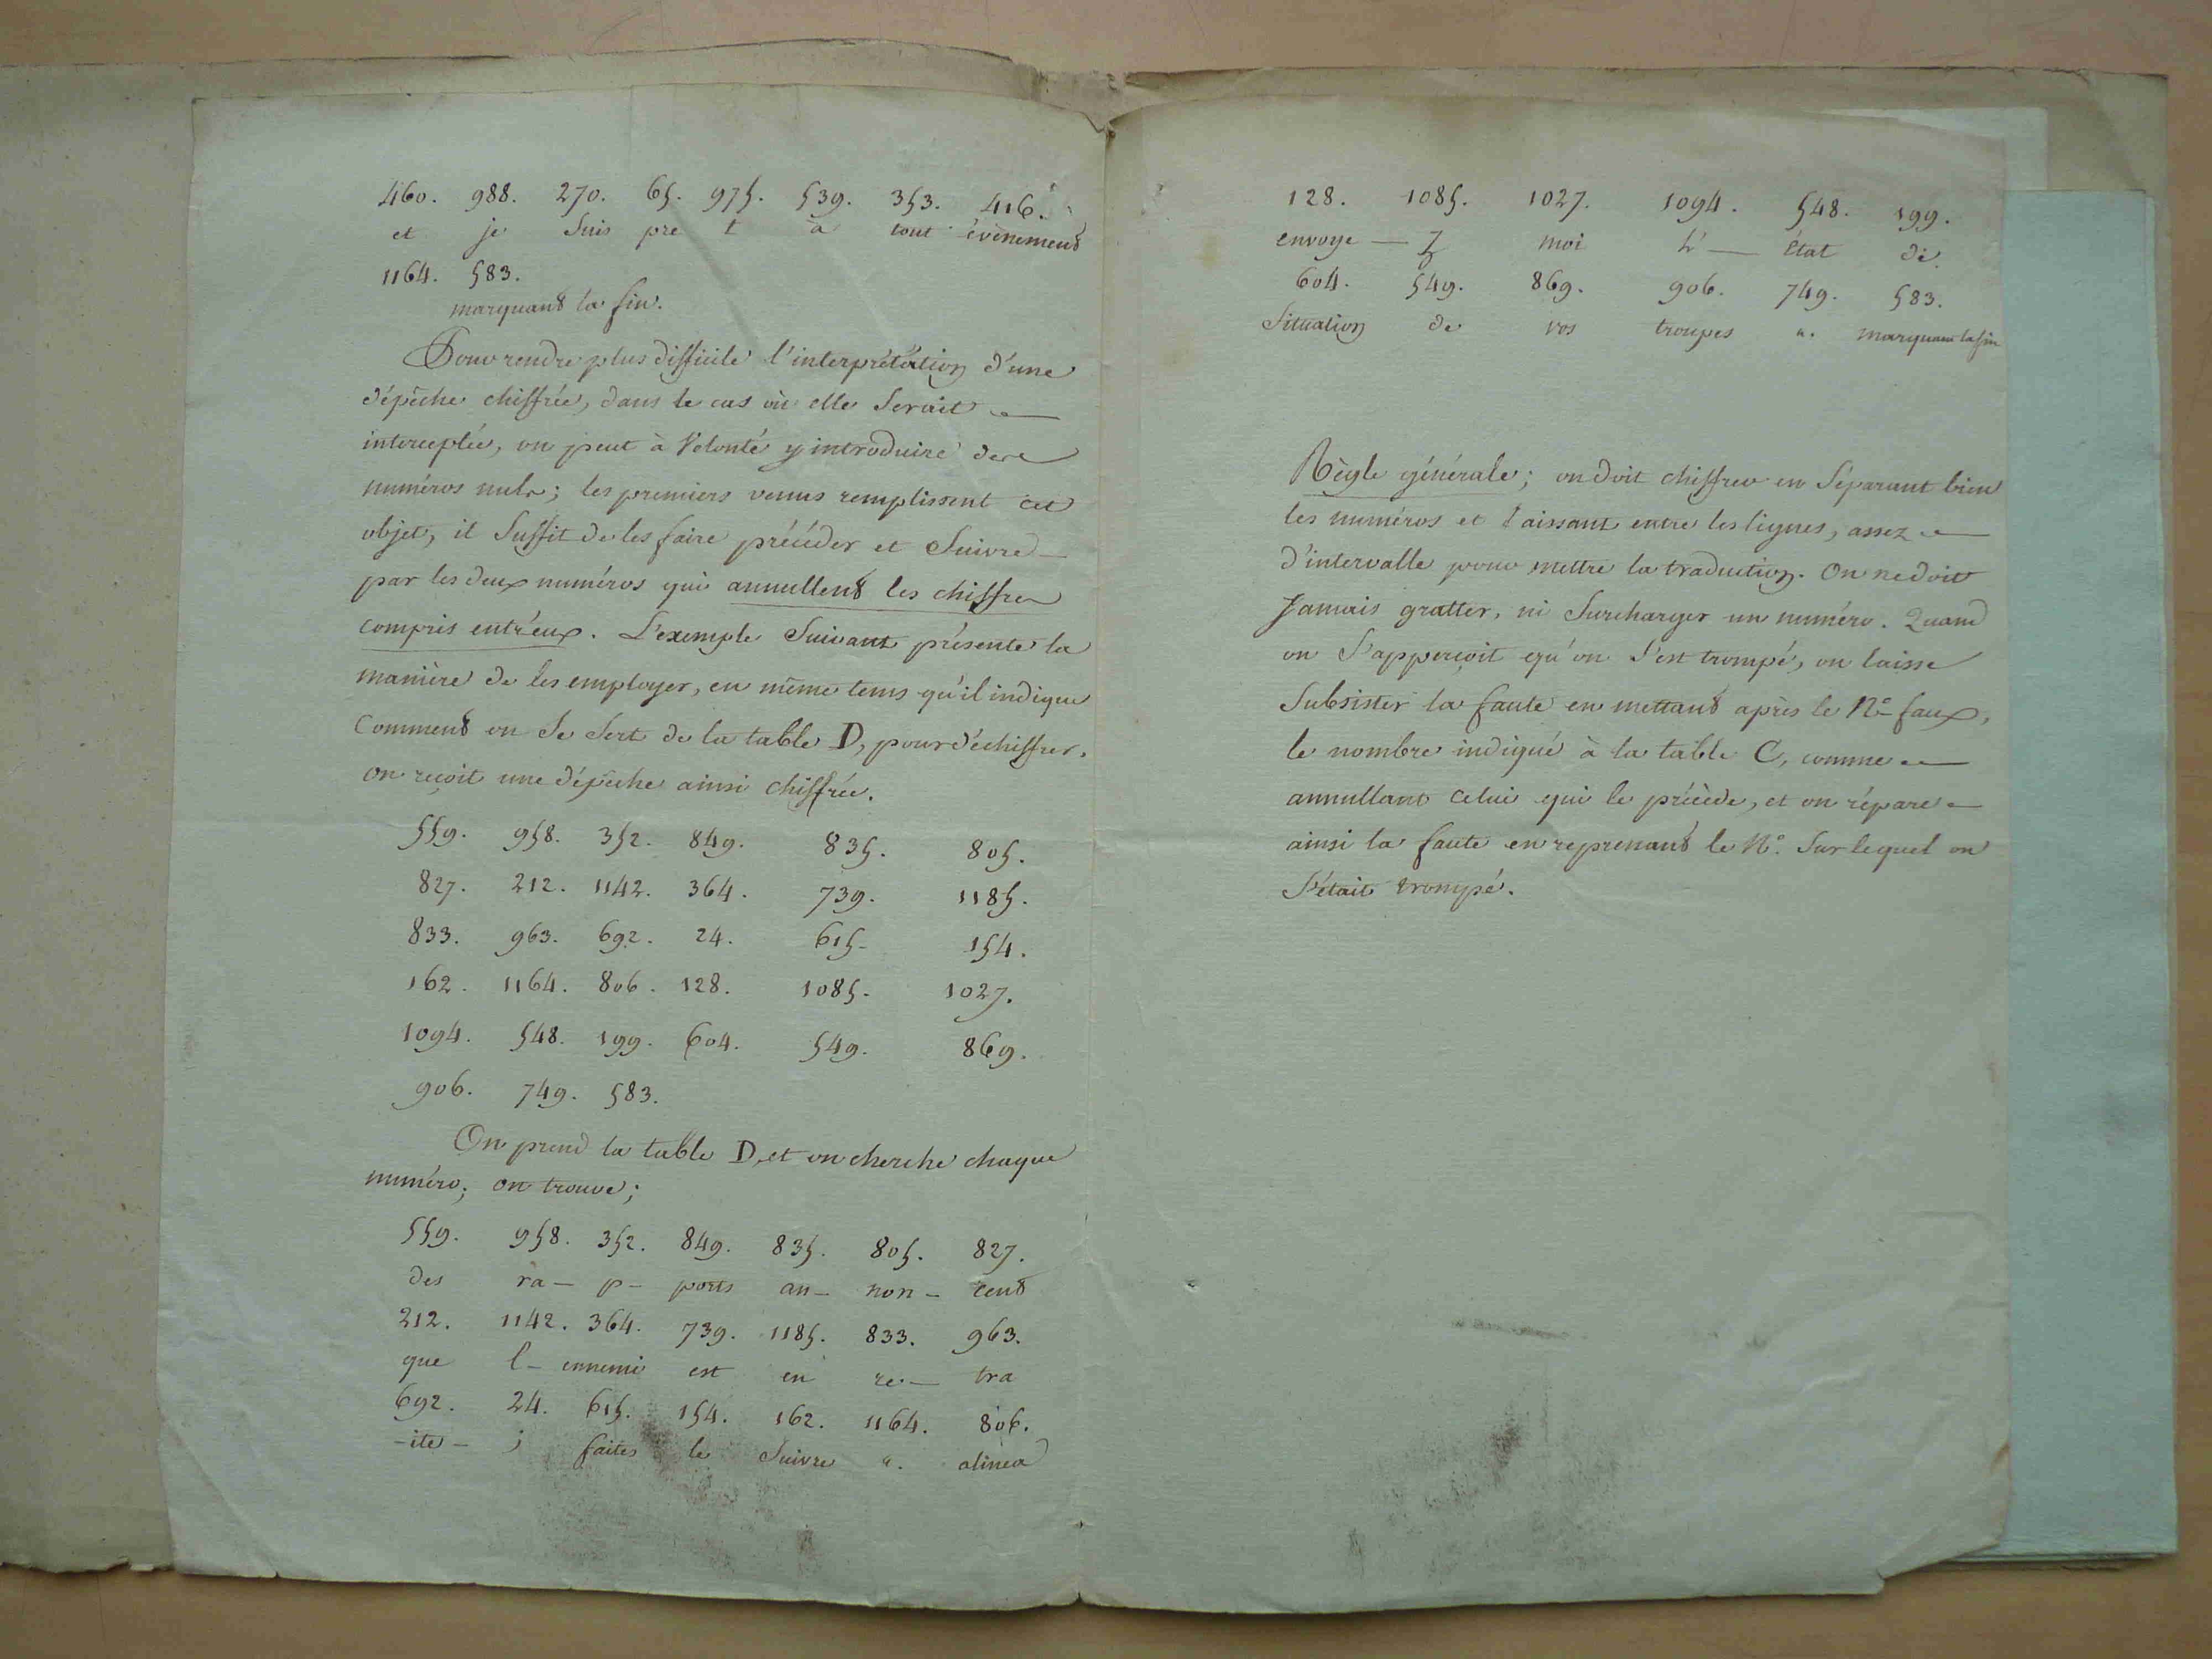 460. 988. 270. 65. 975. 539. 353. 416.
et je suis pre t à tout évènement
1164. 583.
marquant la fin.
Pour rendre plus difficile l'interprétation d'une
dépêche chiffrée, dans le cas où elle serait
interceptée, on peut à volonté y introduire des
numéros nuls; les premiers venus remplissent cet
objet, il suffit de les faire précéder et suivre
par les deux numéros qui annullent les chiffres
compris entr'eux. L'exemple suivant présente la
manière de les employer, en même tems qu'il indique
comment on se sert de la table D, pour déchiffrer.
on reçoit une dépêche ainsi chiffrée.
559. 958. 352. 849. 835. 805.
827. 212. 1142. 364. 739. 1185.
833. 963. 692. 24. 615. 154.
162. 1164. 806. 128. 1085. 1027.
1094. 548. 199. 604. 549. 869.
906. 749. 583.
On prend la table D, et on cherche chaque
numéro; on trouve;
559. 958. 352. 849. 835. 805. 827.
des ra- p- ports an- non- cent
212. 1142. 364. 739. 1185. 833. 963.
que l- ennemi est en re- tra
692. 24. 615. 154. 162. 1164. 806.
-ite- ; faites le suivre ". alinea
128. 1085. 1027. 1094. 548. 199.
envoye- z moi l'- état de
604. 549. 869. 906. 749. 583.
situation de vos troupes ". marquant la fin
Règle générale; on doit chiffrer en séparant bien
les numéros et laissant entre les lignes, assez
d'intervalle pour mettre la traduction. On ne doit
jamais gratter, ni surcharger un numéro. Quand
on s'apperçoit qu'on s'est trompé, on laisse
subsister la faute en mettant après le N° faux,
le nombre indiqué à la table C, comme
annullant celui qui le précède, et on répare
ainsi la faute en reprenant le N° sur lequel on
s'était trompé.